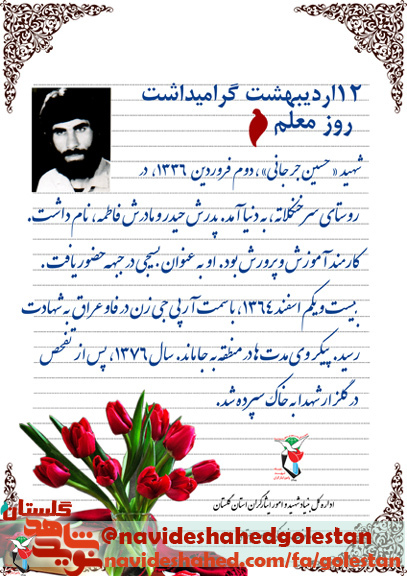 ۱۲اردیبهشت گرامیداشت
روز معلم
شهید «حسین جرجانی»، دوم فروردین ۱۳۳۶، در
روستای سرخنکلاته، به دنیا آمد. پدرش حیدر و مادرش فاطمه، نام داشت.
کارمند آموزش و پرورش بود. او به عنوان بسیجی در جبهه حضور یافت.
بیست و یکم اسفند ۱۳۶۴، با سمت آرپی جی زن در فاو عراق به شهادت
رسید. پیکر وی مدت ها در منطقه به جا ماند. سال ۱۳۷۶، پس از تفحص
در گلزار شهدا به خاک سپرده شد.
اداره کل بنیاد شهید و امور ایثارگران استان گلستان
گلستان
نوید شاهد
@navideshahedgolestan
navideshahed.com/fa/golestan